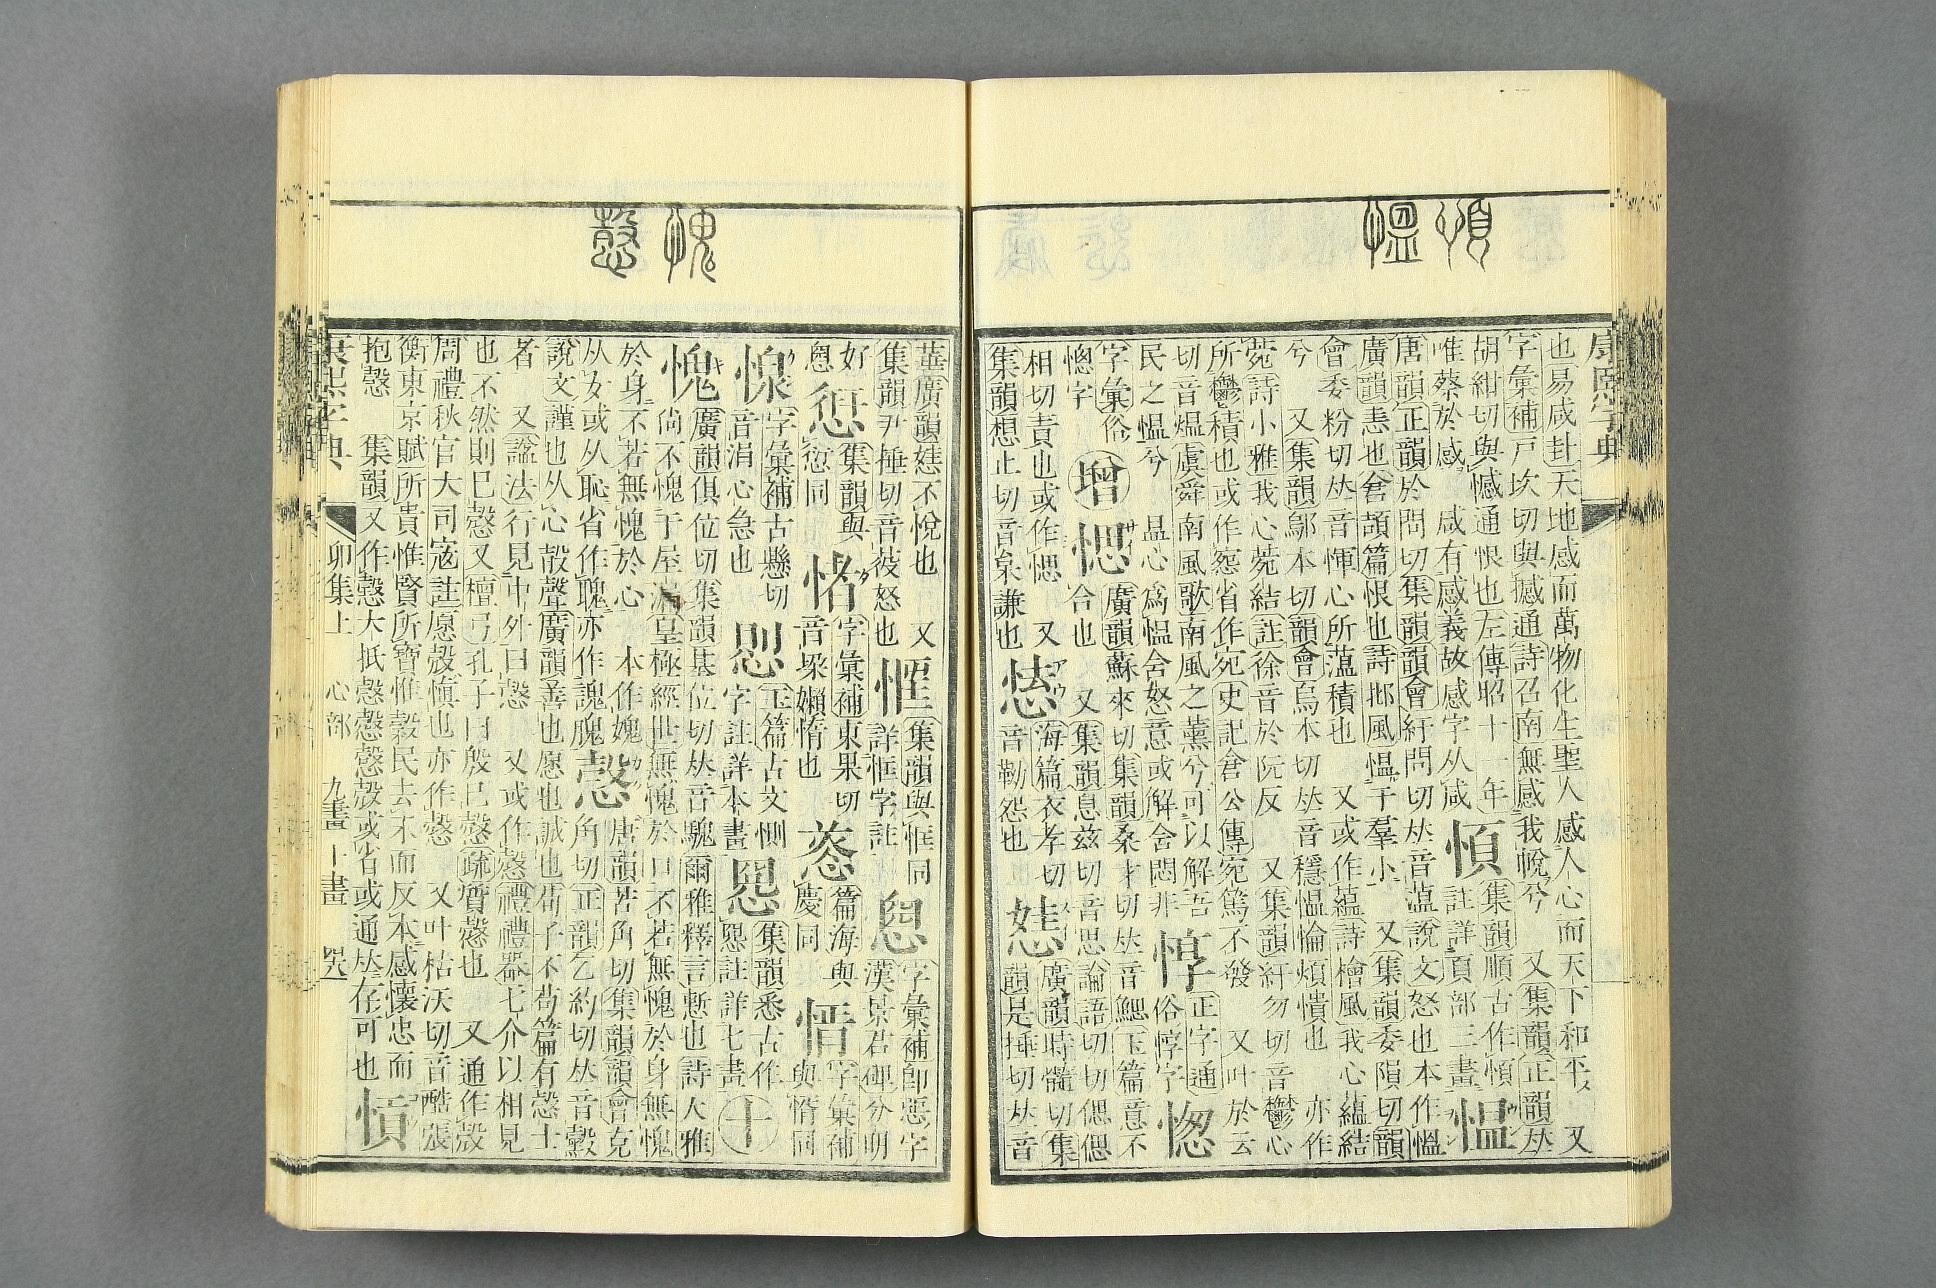 愠 愪
康熙字典
也易咸卦天地感而萬物化生聖人感人心而天下和平 又
字彙補戸坎切與撼通詩召南無感我帨兮 又集韻正韻𠀤
胡紺切與憾通恨也左傳昭十一年
唯蔡於感 咸有感義故感字从咸
集韻順古作愼
註詳頁部三畫
愠
唐韻正韻於問切集韻韻會紆問切𠀤音藴說文怒也本作慍
廣韻恚也倉頡篇恨也詩邶風慍于羣小 又集韻委隕切韻
會委粉切𠀤音惲心所薀積也 又或作蘊詩檜風我心蘊結
兮 又集韻鄔本切韻會烏本切𠀤音穩慍惀煩憒也 亦作
菀詩小雅我心菀結註徐音於阮反 又集韻紆勿切音鬱心
所鬱積也或作怨省作宛史記倉公傳宛篤不發 又叶於云
切音熅虞舜南風歌南風之薰兮可以解吾
民之慍兮 昷心爲慍含怒意或解含悶非
惸
正字通
俗惸字
愡
字彙俗
愡字
增
愢
廣韻蘇來切集韻桑才切𠀤音鰓玉篇意不
合也 又集韻息兹切音思論語切切偲偲
相切責也或作愢 又
集韻想止切音枲謙也
海篇衣孝切
音勒怨也
廣韻時髓切集
韻是捶切𠀤音
愨 愧
華廣韻㛂不悅也 又
集韻尹捶切音莈怒也
惬
集韻與恇同
詳恇字註
字彙補卽惡字
漢景君碑分明
好
惌
集韻與
愆同
字彙補東果切
音朶嬾惰也
篇海與
慶同
愲
字彙補
與惰同
字彙補古懸切
音涓心急也
玉篇古文惻
字註詳本畫
集韻悉古作
註詳七畫
十
愧
廣韻俱位切集韻基位切𠀤音騩爾雅釋言慙也詩大雅
尙不愧于屋漏皇極經世無愧於口不若無愧於身無愧
於身不若無愧於心 本作媿
从女或从恥省作聭亦作謉䰟
愨
唐韻苦角切集韻韻會克
角切正韻乞約切𠀤音㱿
說文謹也从心㱿聲廣韻善也愿也誠也荀子不苟篇有愨士
者 又諡法行見中外曰愨 又或作慤禮禮器七介以相見
也不然則已愨又檀弓孔子曰殷已愨疏質愨也 又通作㱿
周禮秋官大司寇註愿㱿愼也亦作愨 又叶枯沃切音酷張
衡東京賦所貴惟賢所寶惟穀民去末而反本感懷忠而
抱愨 集韻又作慤大抵愨慤㱿或省或通𠀤在可也
康熙字典
卯集上 心部 九畫 十畫